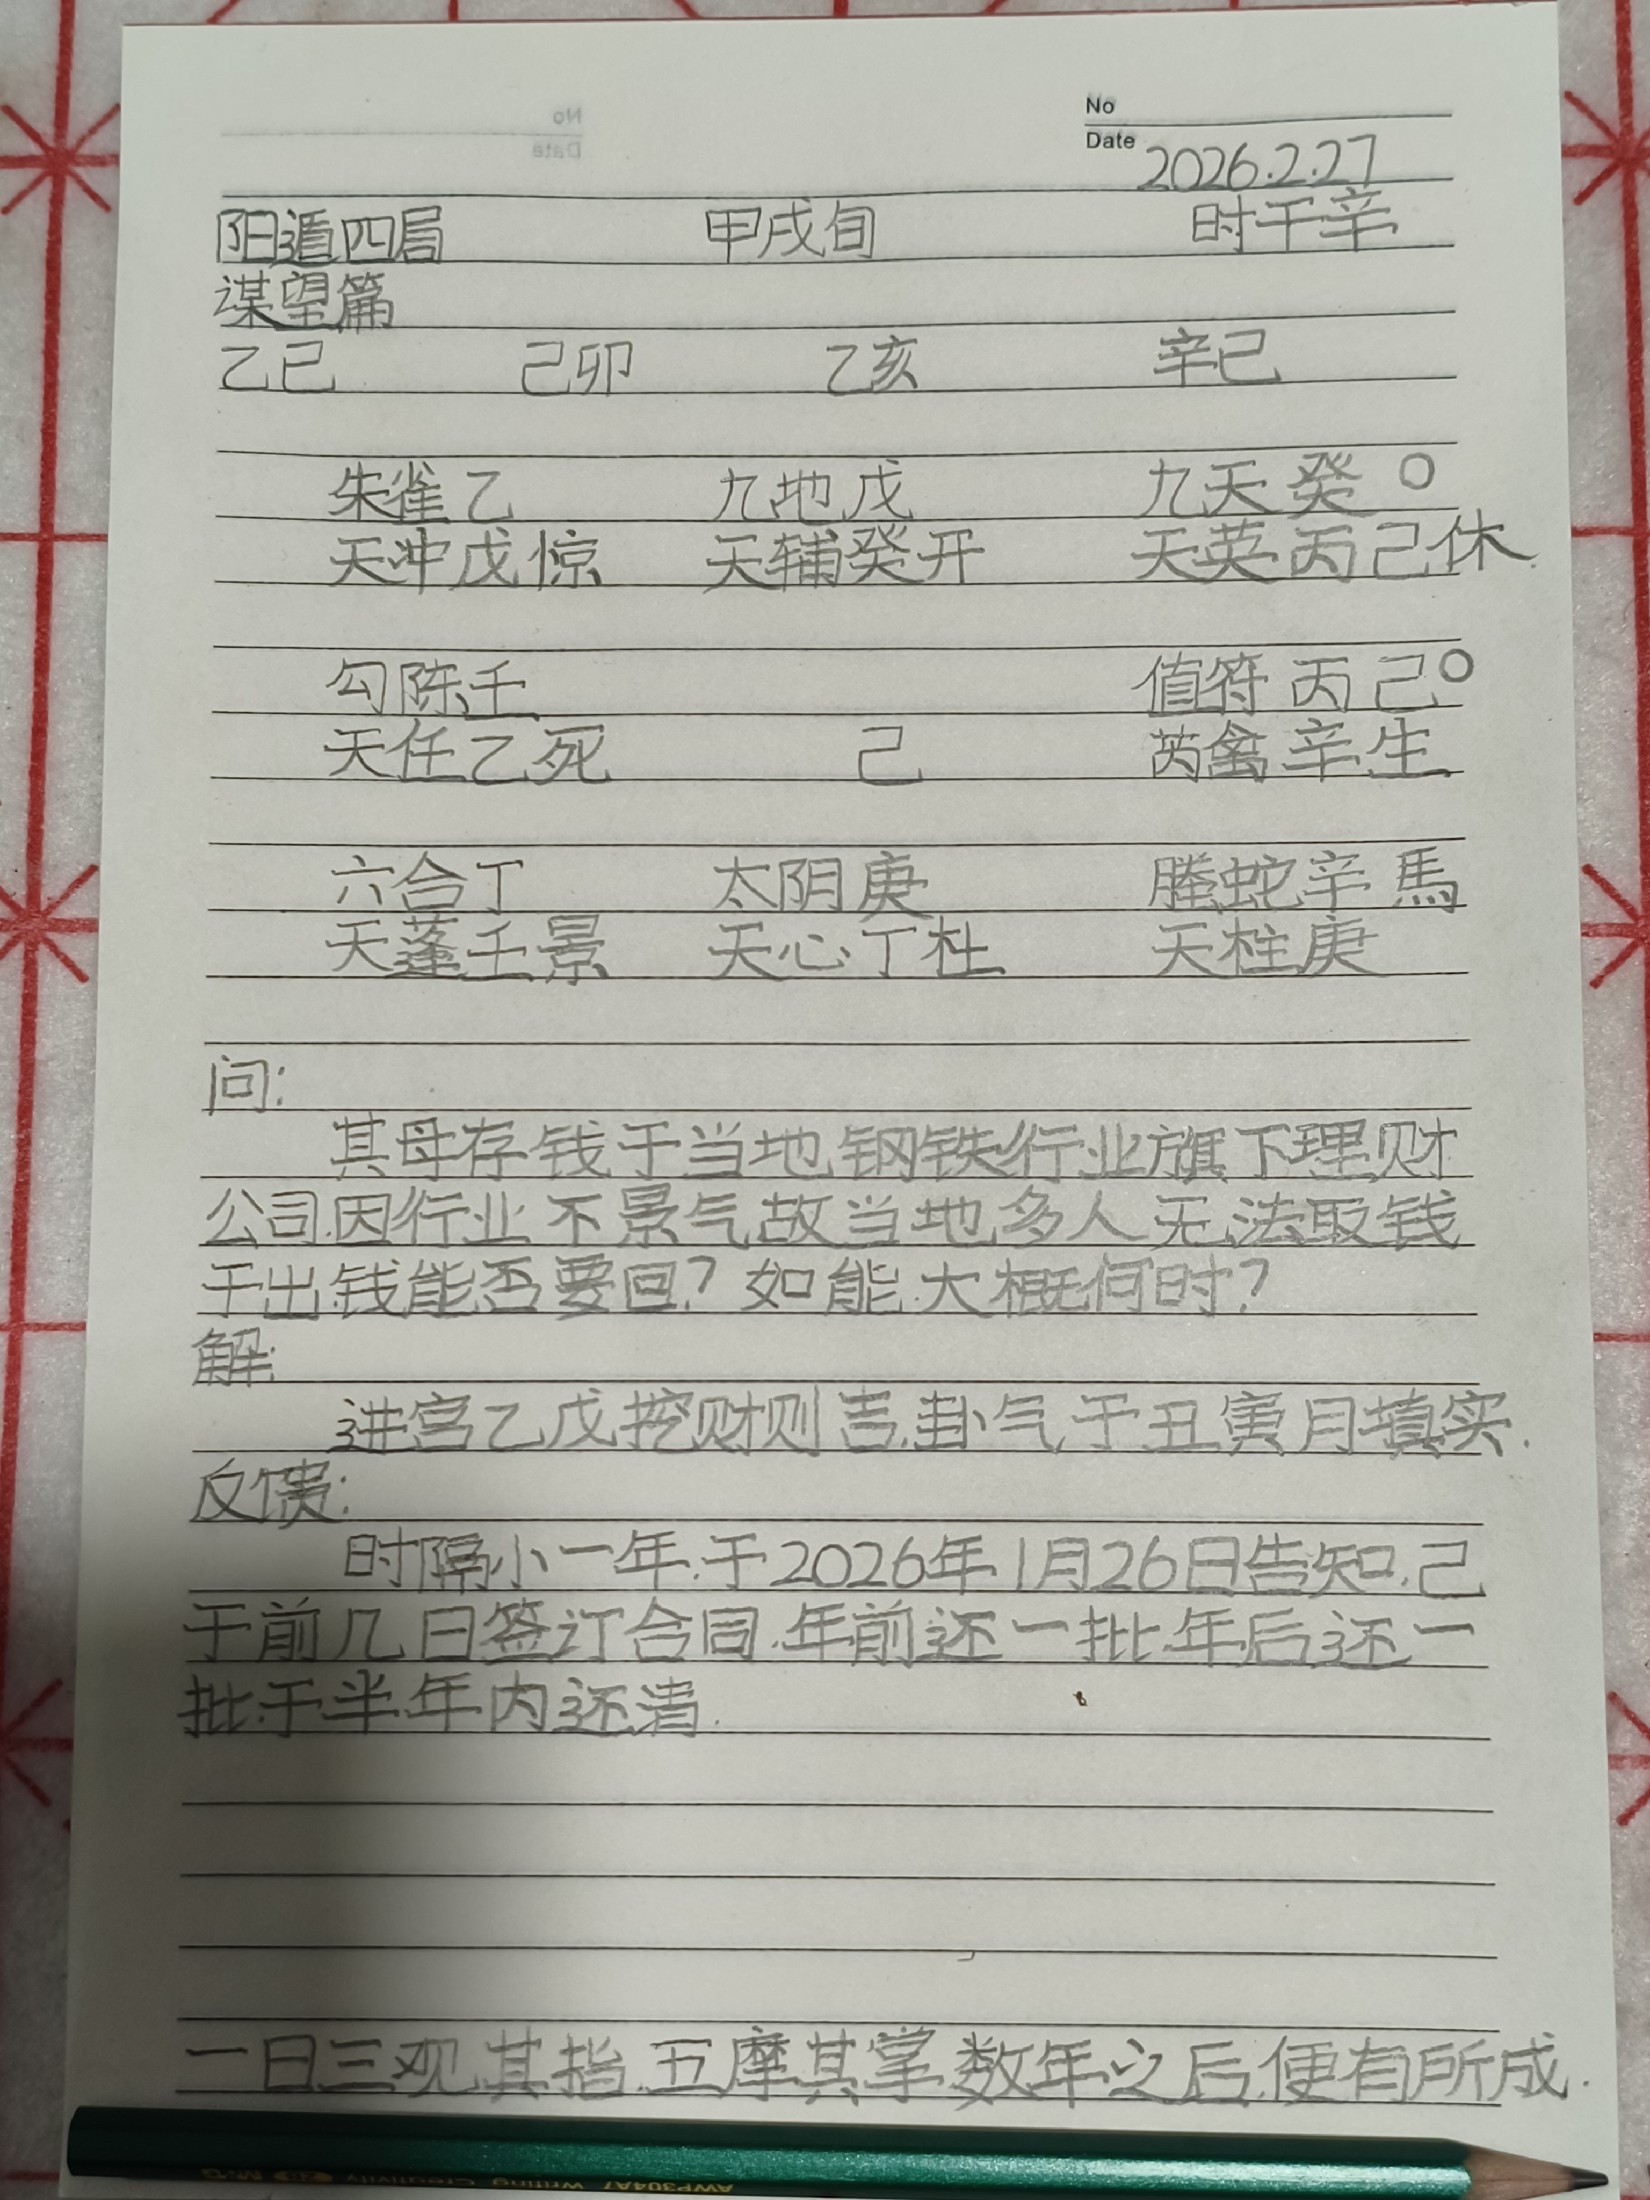 No
Date 2026.2.27
阳遁四局 甲戌旬 时干辛
谋望篇
乙巳 己卯 乙亥 辛巳
朱雀乙 九地戊 九天癸 〇
天冲戊惊 天辅癸开 天英丙己休
勾陈壬 值符丙己〇
天任乙死 己 芮禽辛生
六合丁 太阴庚 螣蛇辛馬
天蓬壬景 天心丁杜 天柱庚
问:
其母存钱于当地钢铁行业旗下理财
公司.因行业不景气故当地多人无法取钱
于出.钱能否要回?如能.大概何时?
解:
进宫乙戊挖财则吉.卦气于丑寅月填实.
反馈:
时隔小一年.于2026年1月26日告知.已
于前几日签订合同.年前还一批.年后还一
批.于半年内还清.
一日三观其指.五摩其掌.数年之后.便有所成.
AWP30447 Writing Creativity M&G